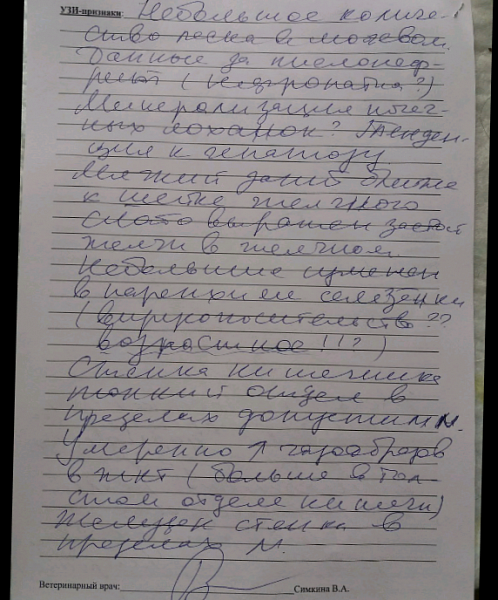 УЗИ-признаки: Небольшое количе-
ство песка в мочевом.
Данные за пиелонеф-
рит (нефропатия?)
Минерализация почеч-
ных лоханок? Тенден-
ция к гепатозу.
Мягкий ближе
к шейке желчного
слабо выражен застой
желчи в желчном.
Небольшие изменен
в паренхиме селезенки
(вирусоносительство??
возрастное!!?)
Стенка кишечника
тонкий отдел в
пределах допустим N.
Умеренно ↑ газообразов
в жкт (больше в тол
стом отделе кишечн)
Желудок стенка в
пределах N.
Ветеринарный врач: Симкина В.А.